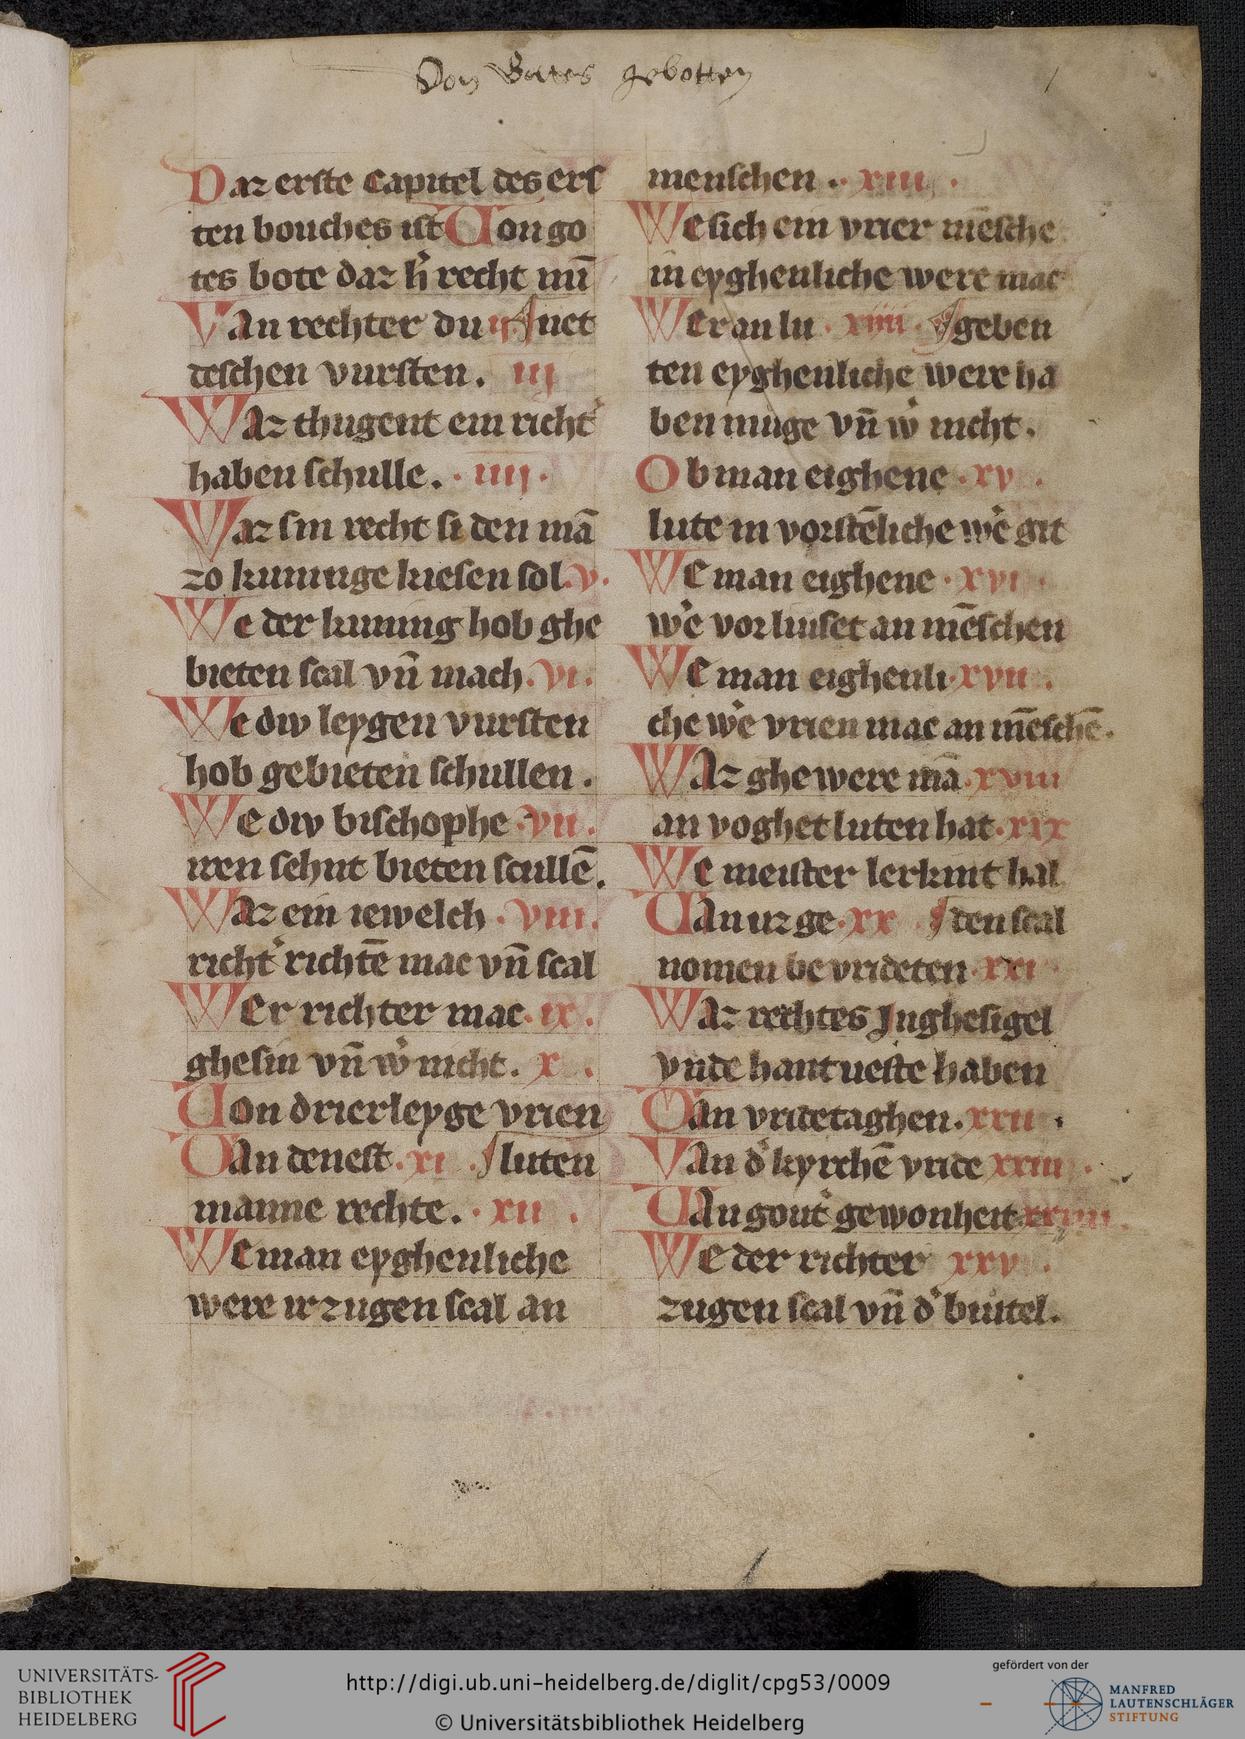 Von Gottes gebotten
Daz erste capitel des ers
ten bouches ist Uon go
tes bote daz h͛ recht mīn
Van rechter du ij net
teschen vursten. iij
Waz thugent ein richt͛
haben schulle. · iiij ·
Waz sin recht si den mā
zo kuninge kiesen sol. v.
We der kuning hob ghe
bieten scal vn̄ mach. vi.
We diw leygen vursten
hob gebieten schullen.
We diw bischophe · vii.
iren sehnt bieten scullē.
Waz ein iewelch · viii.
richt͛ richtē mac vn̄ scal
Wer richter mac · ix.
ghesin vn̄ w͛ nicht. x.
Uon drierleyge vrien
Uan denest · xi · luten
manne rechte. · xii ·
We man eyghenliche
were irzugen scal an
menschen . · xiii ·
We sich ein vrier mēsche
in eyghenliche were mac
Wer an lu · xiiii · geben
ten eyghenliche were ha
ben muge vn̄ w͛ nicht.
Ob man eighene · xv ·
lute in vorstēliche we͛ git
We man eighene · xvi ·
we͛ vorliuset an mēschen
We man eighenli · xvii ·
che we͛ vrien mac an mēschē.
Waz ghewere mā · xviii
an voghet luten hat · xix
We meister lerkint hal
Uan uz ge · xx · den scal
nomen be vrideten · xxi ·
Waz rechtes Jnghesigel
vnde hantueste haben
Uan vridetaghen. xxii ·
Van d͛ kyrchē vride xxiii ·
Uan gout͛ gewonheit xxiiii.
We der richter xxv ·
zugen scal vn̄ d͛ butel.
UNIVERSITÄTS-
BIBLIOTHEK
HEIDELBERG
http://digi.ub.uni-heidelberg.de/diglit/cpg53/0009
© Universitätsbibliothek Heidelberg
gefördert von der
MANFRED
LAUTENSCHLÄGER
STIFTUNG